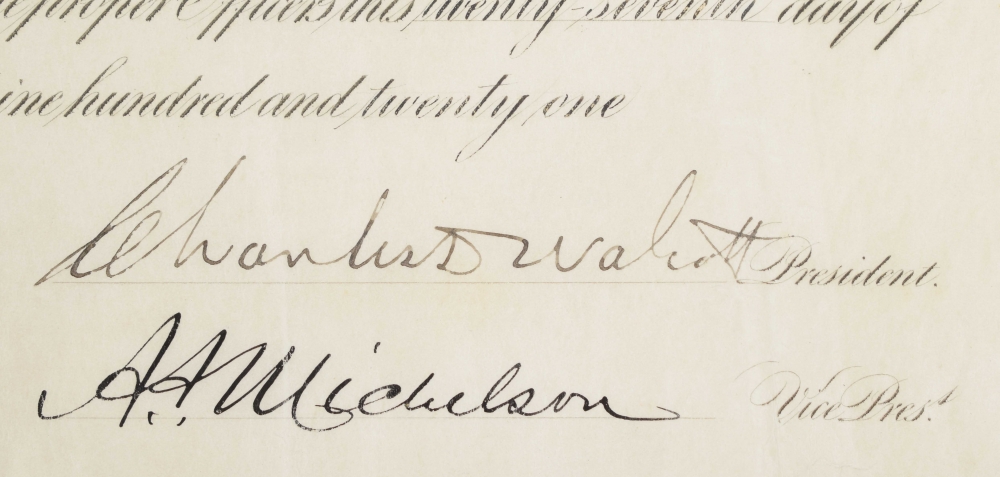 proper Officers this twenty-seventh day of
ine hundred and twenty one
Charles D Walcott President.
A. A. Michelson Vice Pres.t